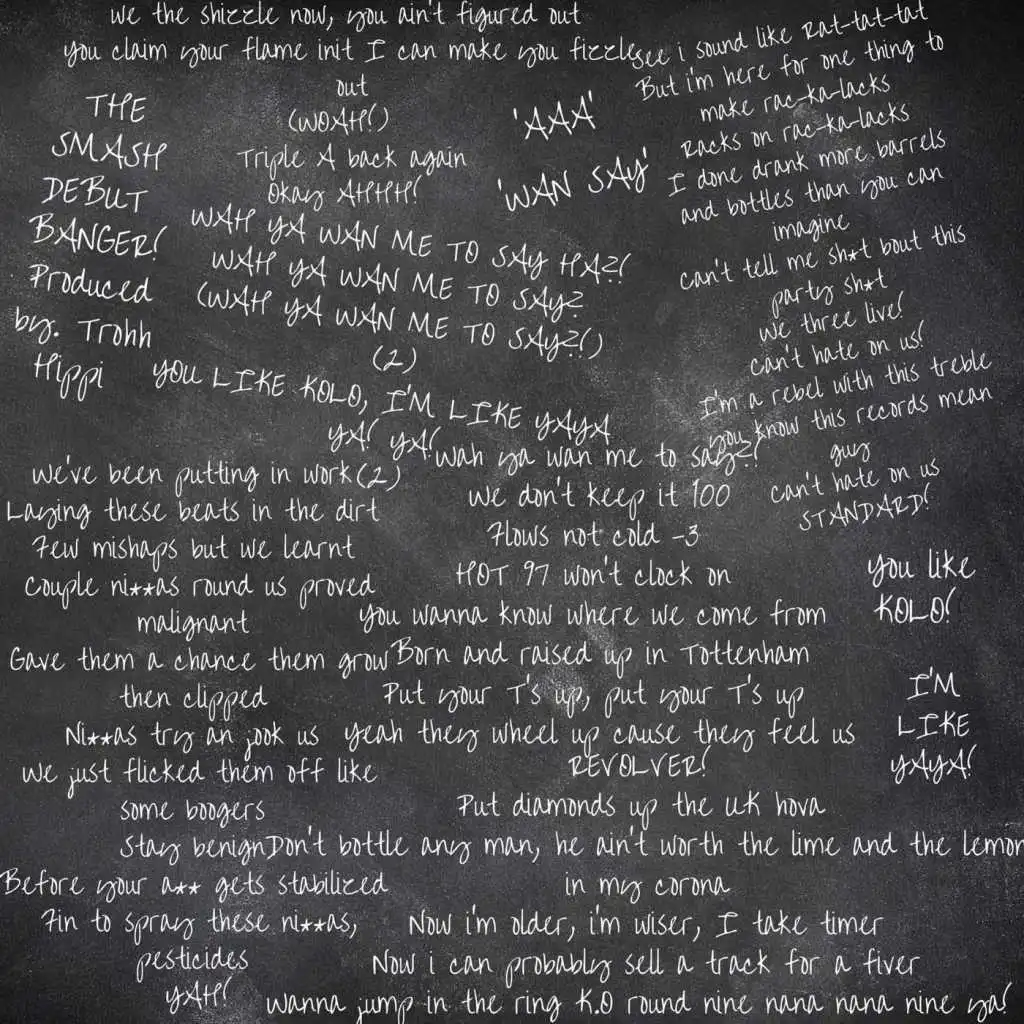 we the shizzle now, you ain't figured out
you claim your flame init I can make you fizzle
out
(WOAH!)
Triple A back again
Okay AHHH!
WAH YA WAN ME TO SAY HA?!
WAH YA WAN ME TO SAY?
(WAH YA WAN ME TO SAY?!)
(2)
YOU LIKE KOLO, I'M LIKE YAYA
YA! YA!
THE
SMASH
DEBUT
BANGER!
Produced
by. Trohh
Hippi
'AAA'
'WAN SAY'
See i sound like Rat-tat-tat
But i'm here for one thing to
make rac-ka-lacks
Racks on rac-ka-lacks
I done drank more barrels
and bottles than you can
imagine
can't tell me sh*t bout this
party sh*t
We three live!
can't hate on us!
I'm a rebel with this treble
you know this records mean
guy
can't hate on us
STANDARD!
We've been putting in work(2)
Laying these beats in the dirt
Few mishaps but we learnt
Couple ni**as round us proved
malignant
Gave them a chance them grow
then clipped
Ni**as try an jook us
We just flicked them off like
some boogers
Stay benign
Before your a** gets stabilized
Fin to spray these ni**as,
pesticides
YAH!
'Wah ya wan me to say?!
We don't keep it 100
Flows not cold -3
HOT 97 won't clock on
You wanna know where we come from
Born and raised up in Tottenham
Put your T's up, put your T's up
yeah they wheel up cause they feel us
REVOLVER!
Put diamonds up the UK hova
Don't bottle any man, he ain't worth the lime and the lemon
in my corona
Now i'm older, i'm wiser, I take timer
Now i can probably sell a track for a fiver
Wanna jump in the ring K.O round nine nana nana nine ya!
You like
KOLO!
I'M
LIKE
YAYA!